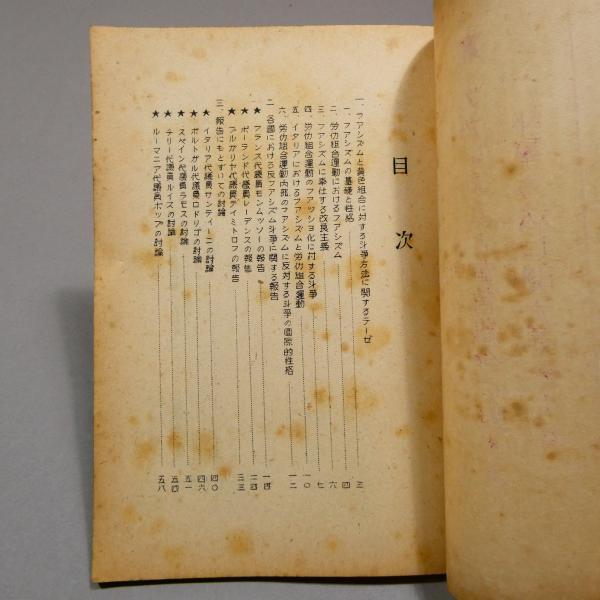 目次
一、ファシズムと黄色組合に対する斗争方法に関するテーゼ……三
一、ファシズムの基礎と性格……四
二、労仂組合運動におけるファシズム……六
三、ファシズムに奉仕する改良主義……七
四、労仂組合運動のファッショ化に対する斗争……一〇
五、イタリアにおけるファシズムと労仂組合運動……一二
六、労仂組合運動内部のファシズムに反対する斗争の国際的性格
二、各国における反ファシズム斗争に関する報告……一四
★ フランス代議員モンムッソーの報告……一四
★ ポーランド代議員レーデンスの報告……二四
★ ブルガリヤ代議員デイミトロフの報告……三三
三、報告にもとずいての討論
★ イタリア代議員サンティーニの討論……四〇
★ ポルトガル代議員ロドリゴの討論……四六
★ スペイン代議員ラモスの討論……五一
★ チリー代議員ルイスの討論……五四
★ ルーマニア代議員ポップの討論……五八